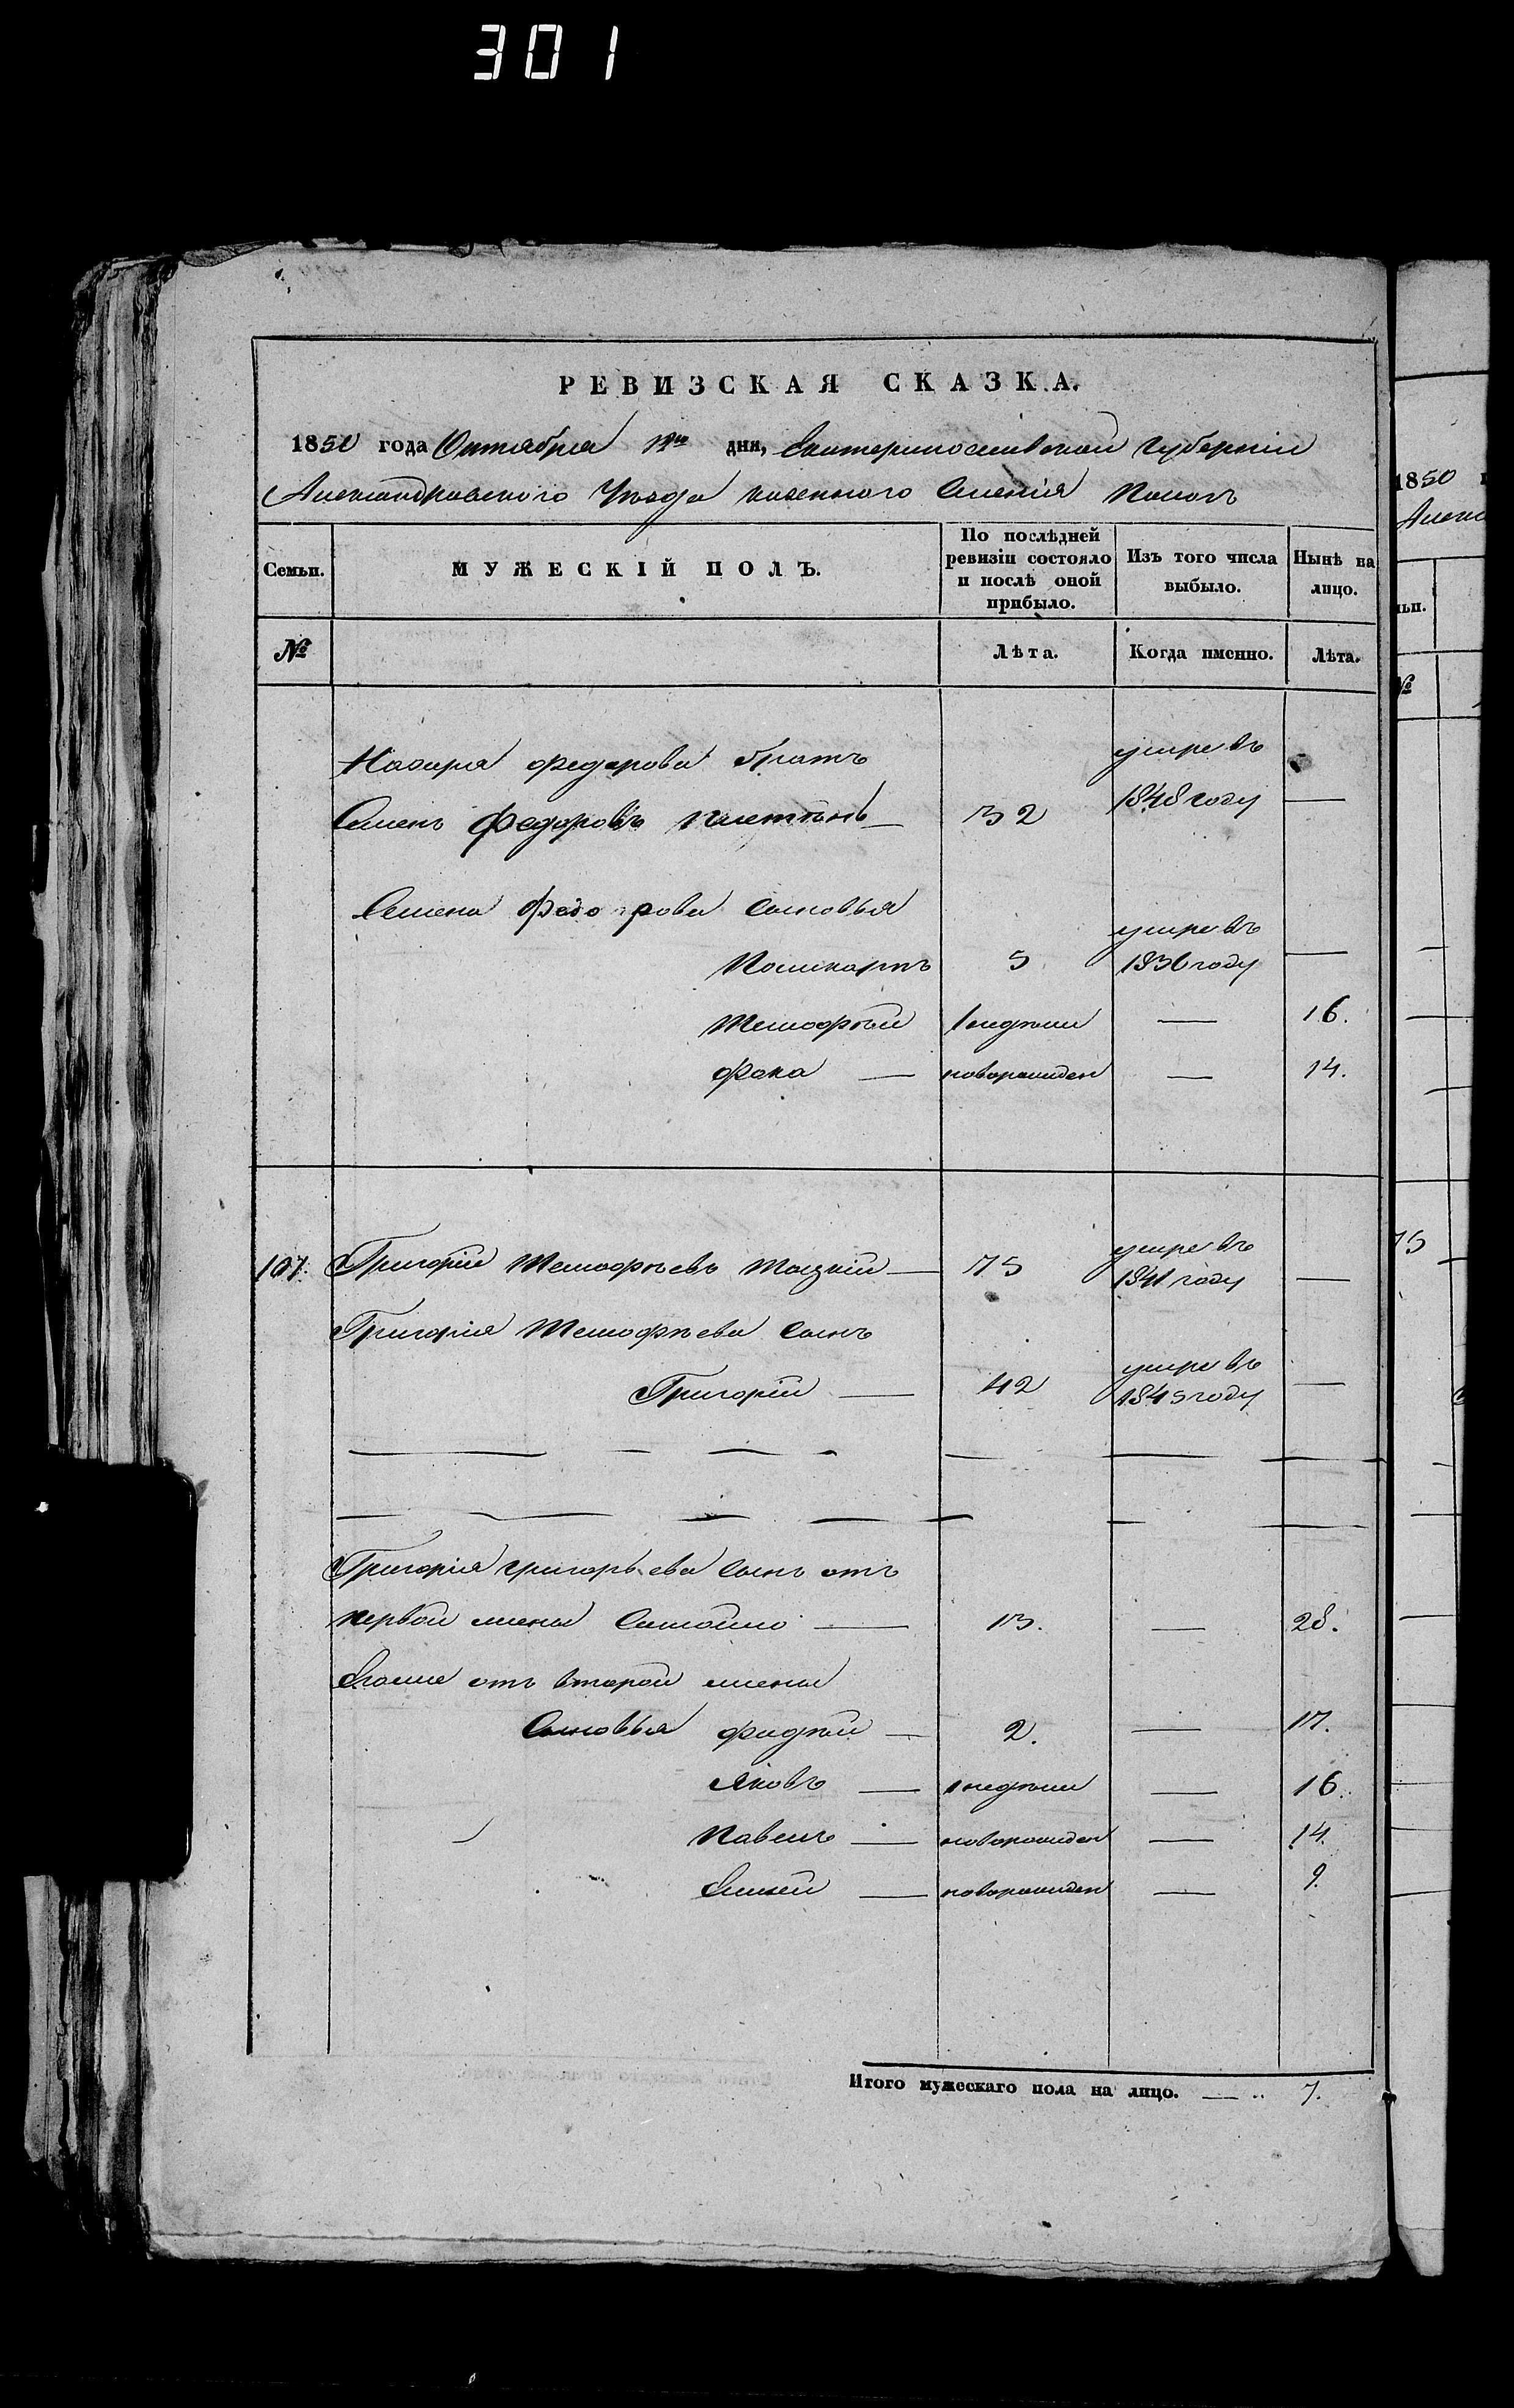 301
РЕВИЗСКАЯ СКАЗКА.
1850 года Октября дня, Екатеринославской Губернии
Александровского Уезда казенного Селения
Семьи. МУЖЕСКІЙ ПОЛЪ. По послѣдней ревизіи состояло и послѣ оной прибыло. Изъ того числа выбыло. Нынѣ на лицо.
№ Лѣта. Когда именно. Лѣта.
Назара Федорова братъ умре въ
Семенъ Федоровъ 32 1848 году —
Семена Федорова Сыновья
умре въ
Поликарпъ 5 1836 году —
Тимофѣй 1 недѣли — 16.
Фока — новорожден — 14.
107. Григорій Тимофѣевъ 75 умре въ 1841 году —
Григорія Тимофѣева Сынъ
Григорій — 42 умре въ 1845 году —
Григорія Григорьева Сынъ отъ
первой жены Самойло — 13. — 28.
Егоже отъ второй жены
Сыновья Фадѣй — 2. — 17.
Яковъ — 1 недѣли — 16.
Павелъ — новорожден — 14.
Елисей — новорожден — 9.
Итого мужескаго пола на лицо. — 7.
1850